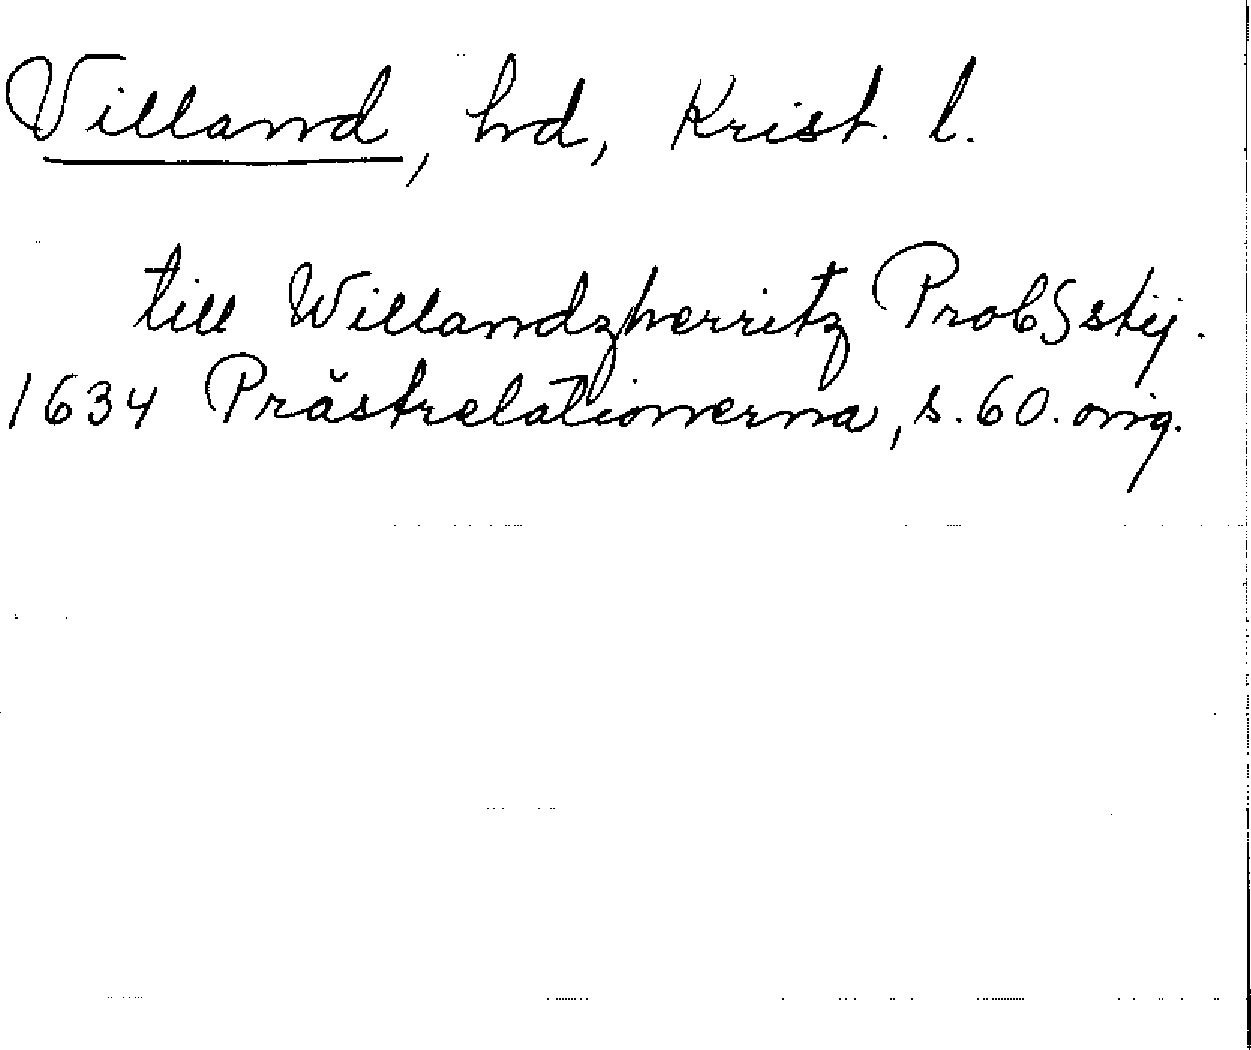 Villand, hd, Krist. l.
till Willandzherritz Probßstij.
1634 Prästrelationerna, s. 60. orig.